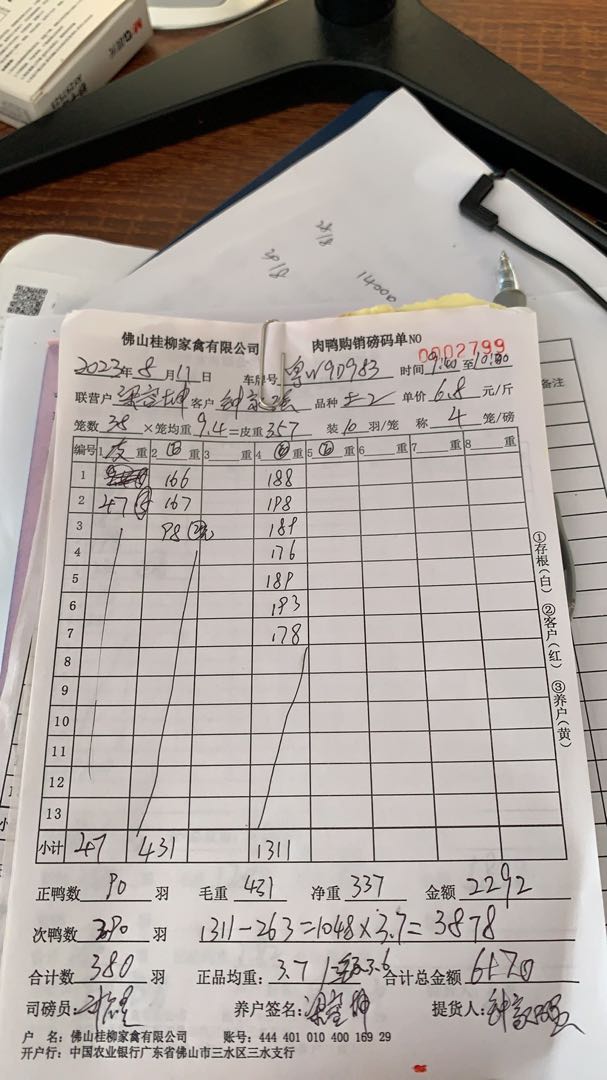 3418
3918
14000
佛山桂柳家禽有限公司 肉鸭购销磅码单NO 0002799
2023年8月11日 车牌号 粤W9D983 时间 9:40 至10:00
联营户 客户 品种 土2 单价 6.8 元/斤
笼数 38 ×笼均重 9.4 =皮重 357 装 10 羽/笼 称 4 笼/磅
备注
编号 1 皮 重 2 重 3 重 4 重 5 重 6 重 7 重 8 重
1 166 188
2 47 167 198
3 98 189
4 176
5 189
6 193
7 178
8
9
10
11
12
13
小计 47 431 1311
①存根(白) ②客户(红) ③养户(黄)
正鸭数 90 羽 毛重 431 净重 337 金额 2292
次鸭数 290 羽 1311-263=1048×3.7=3878
合计数 380 羽 正品均重: 3.7 3.6 合计总金额 6170
司磅员: 养户签名: 提货人:
户 名: 佛山桂柳家禽有限公司 账号: 444 401 010 400 169 29
开户行: 中国农业银行广东省佛山市三水区三水支行